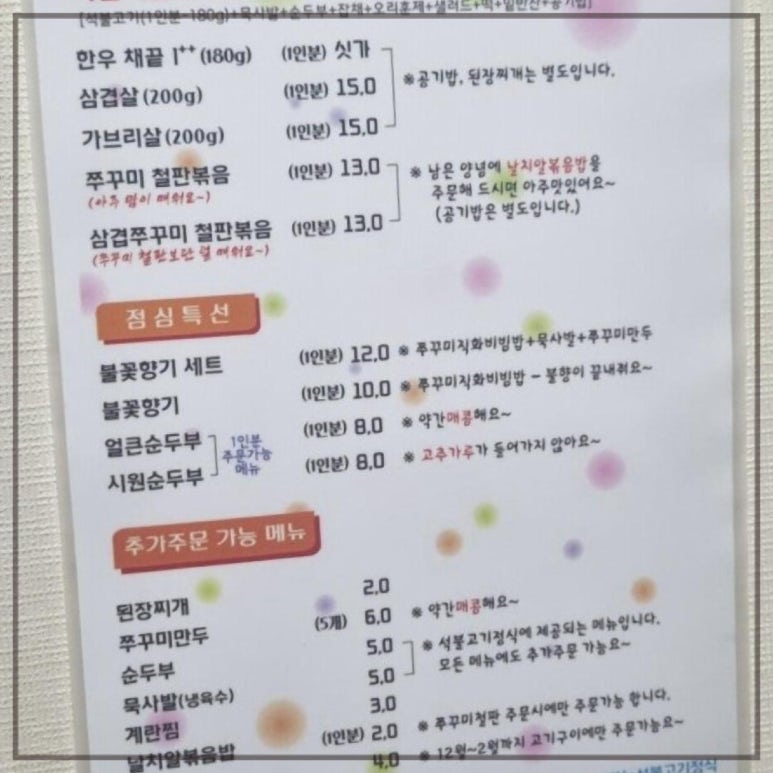 [석불고기(1인분-180g)+묵사발+순두부+잡채+오리훈제+샐러드+떡+밑반찬+공기밥]
한우 채끝 1++ (180g) (1인분) 싯가
삼겹살 (200g) (1인분) 15.0 ※ 공기밥, 된장찌개는 별도입니다.
가브리살 (200g) (1인분) 15.0
쭈꾸미 철판볶음 (1인분) 13.0 ※ 남은 양념에 날치알볶음밥을
(아주 많이 매워요~) 주문해 드시면 아주맛있어요~
삼겹쭈꾸미 철판볶음 (1인분) 13.0 (공기밥은 별도입니다.)
(쭈꾸미 철판보단 덜 매워요~)
점심특선
불꽃향기 세트 (1인분) 12.0 ※ 쭈꾸미직화비빔밥+묵사발+쭈꾸미만두
불꽃향기 (1인분) 10.0 ※ 쭈꾸미직화비빔밥 - 불향이 끝내줘요~
얼큰순두부 1인분 주문가능 메뉴 (1인분) 8.0 ※ 약간매콤해요~
시원순두부 (1인분) 8.0 ※ 고추가루가 들어가지 않아요~
추가주문 가능 메뉴
된장찌개 2.0
쭈꾸미만두 (5개) 6.0 ※ 약간매콤해요~
순두부 5.0 ※ 석불고기정식에 제공되는 메뉴입니다.
묵사발(냉육수) 5.0 모든 메뉴에도 추가주문 가능요~
계란찜 3.0
날치알볶음밥 (1인분) 2.0 ※ 쭈꾸미철판 주문시에만 주문가능 합니다.
4.0 ※ 12월~2월까지 고기구이에만 주문가능요~
석불고기정식